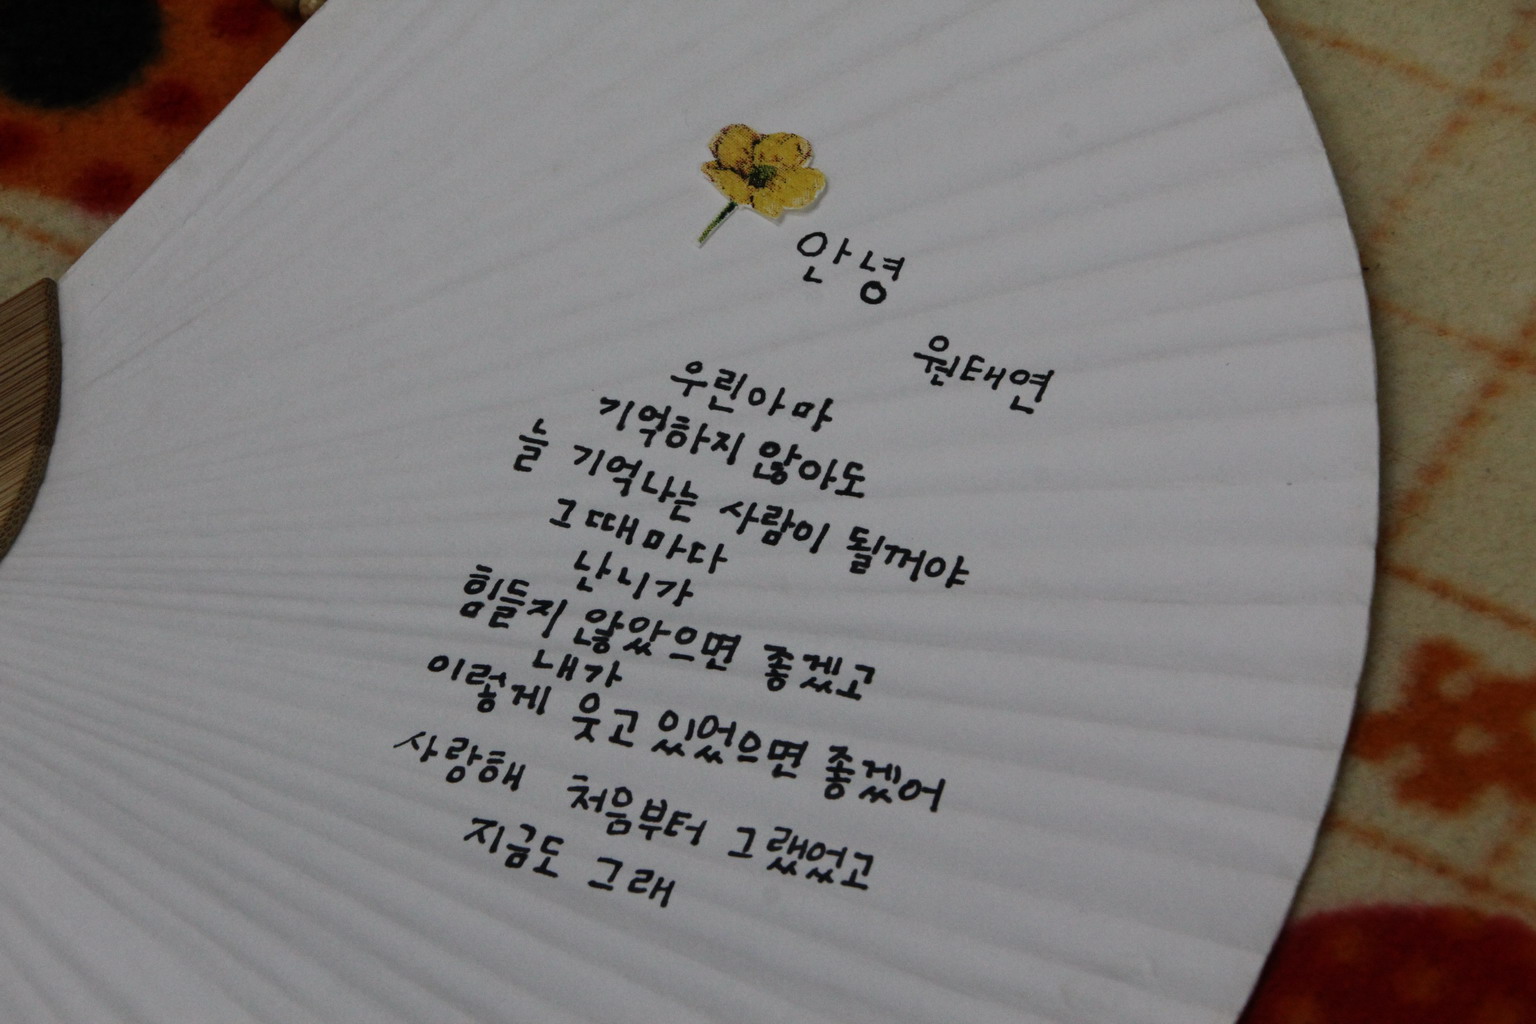 안녕
원태연
우린아마
기억하지 않아도
늘 기억나는 사람이 될꺼야
그때마다
난 니가
힘들지 않았으면 좋겠고
내가
이렇게 웃고 있었으면 좋겠어
사랑해 처음부터 그랬었고
지금도 그래